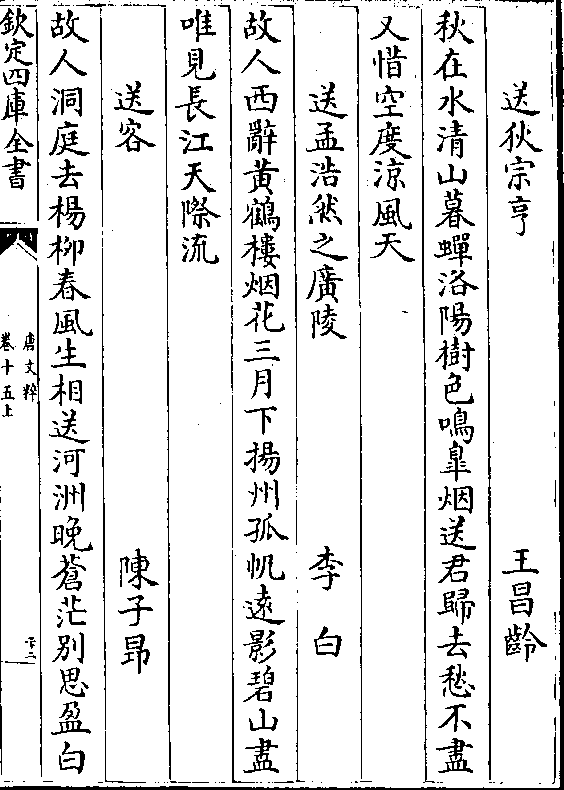 送狄宗亨　王昌齡
秋在水清山暮蟬洛陽樹色鳴臯烟送君歸去愁不盡
又惜空度涼風天
送孟浩然之廣陵　李白
故人西辭黃鶴樓烟花三月下揚州孤帆遠影碧山盡
唯見長江天際流
送客　陳子昻
故人洞庭去楊柳春風生相送河洲晚蒼茫別思盈白
欽定四庫全書
唐文粹
卷十五上